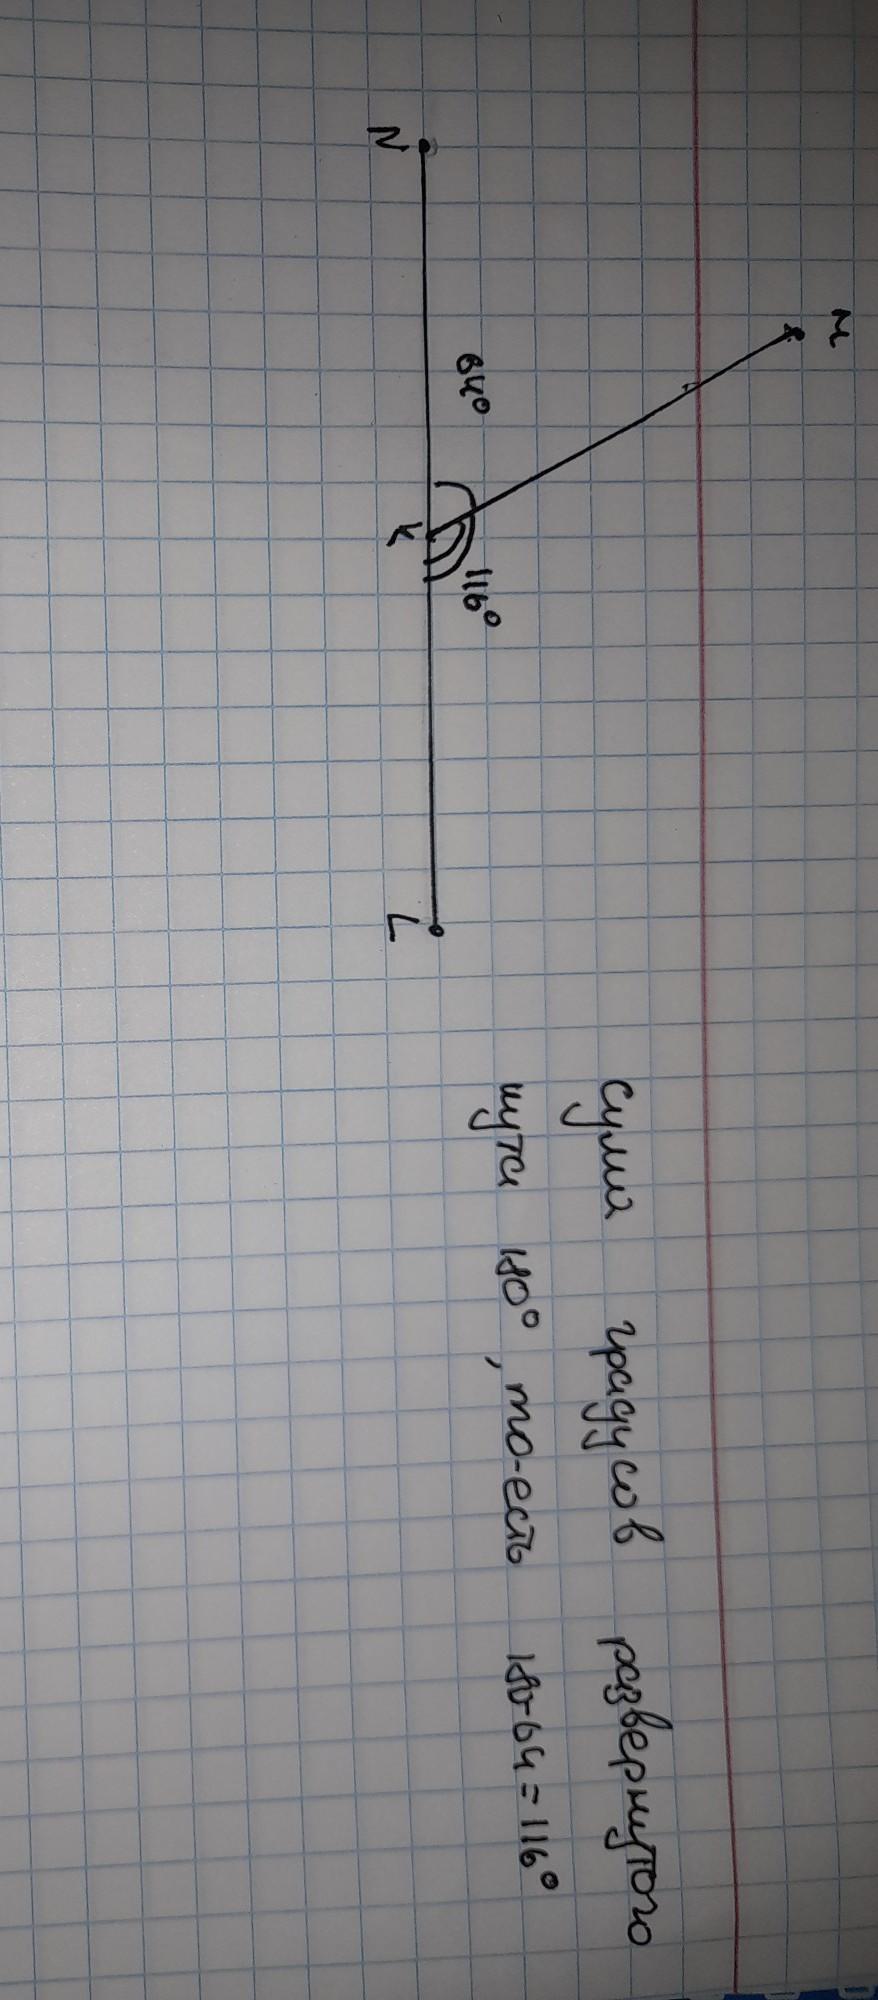 M
64°
116°
N
K
L
сумма градусов развернутого
шута 180°, то-есть 180-64=116°